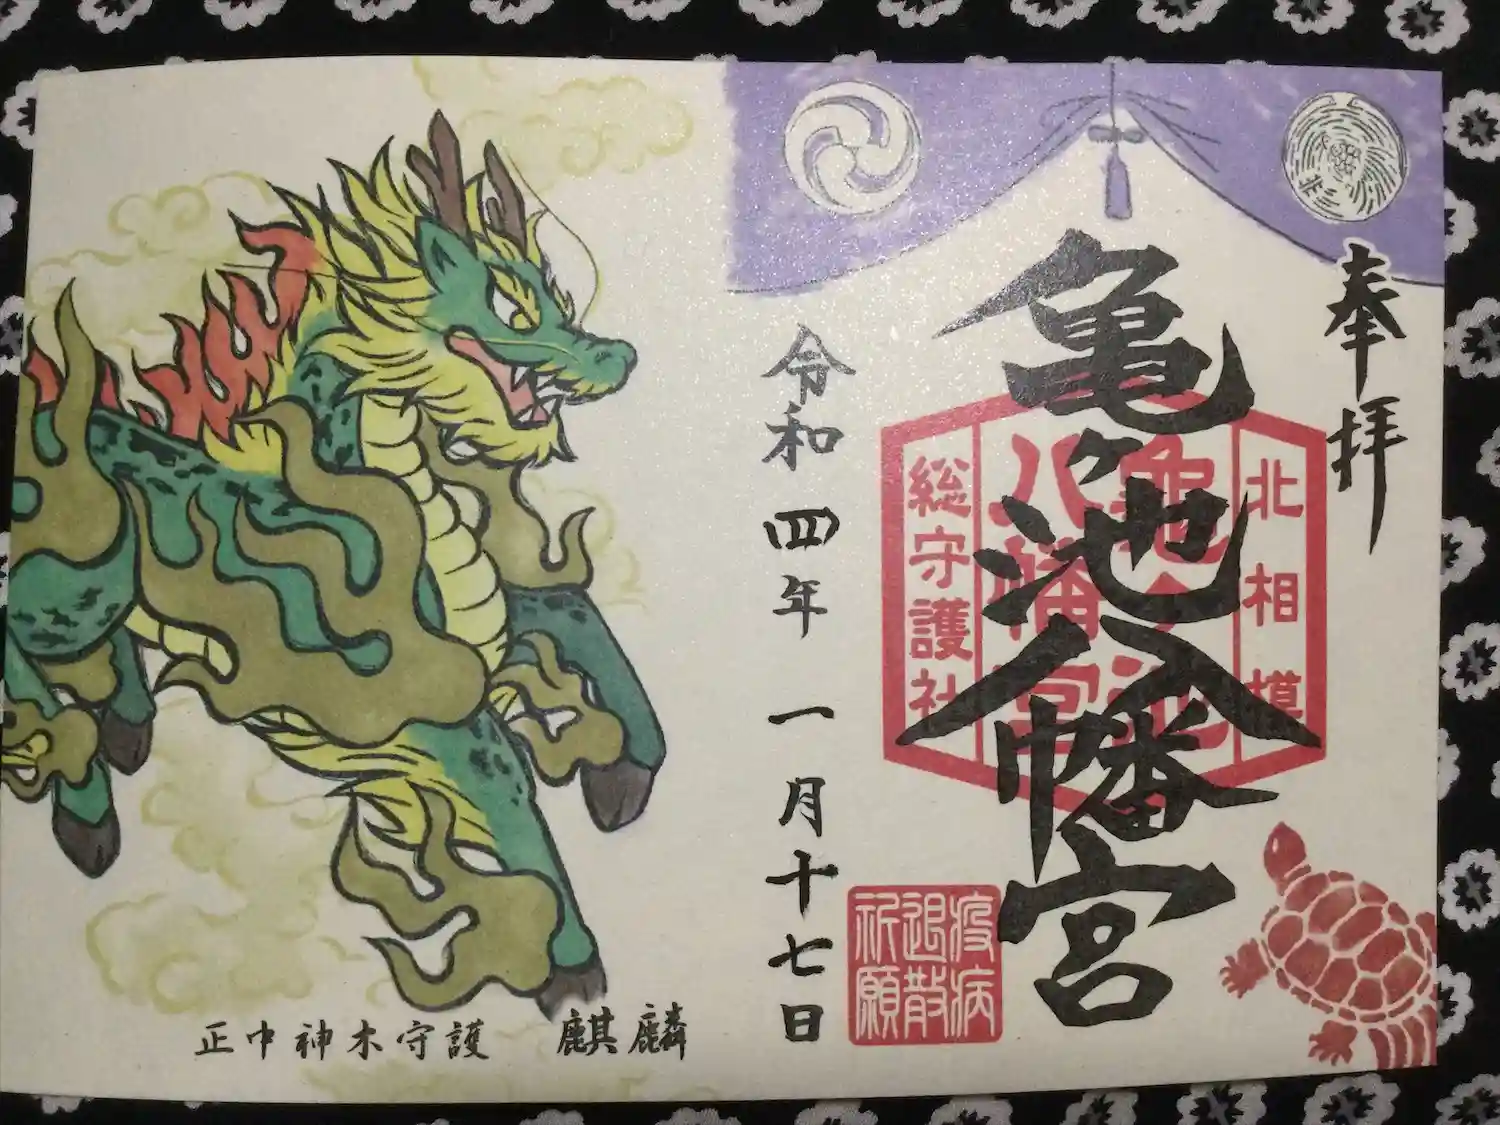 奉拝
亀ヶ池八幡宮
北相模
亀ヶ池
八幡宮
総守護社
疫病
退散
祈願
令和四年一月十七日
正中神木守護 麒麟